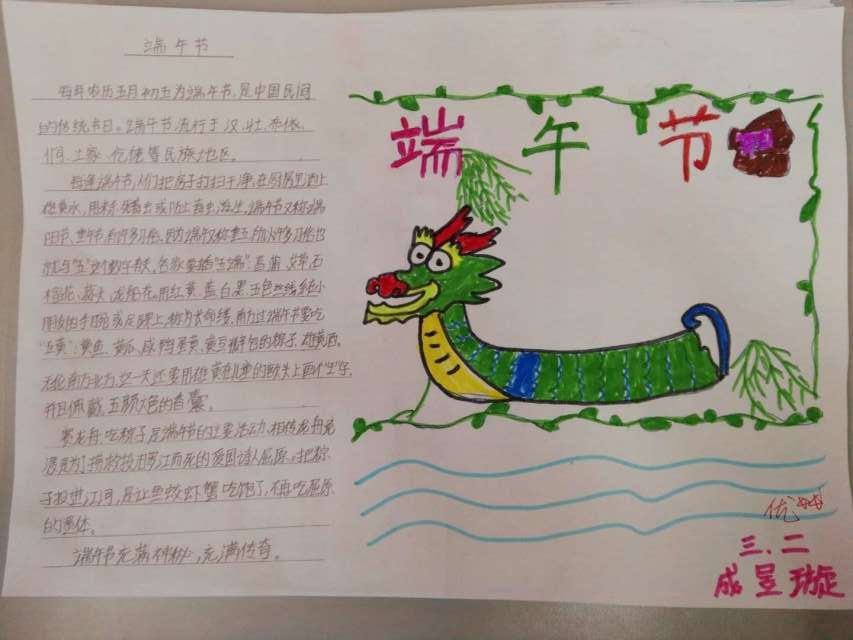 端午节
每年农历五月初五为端午节,是中国民间
的传统节日。端午节流行于汉、壮、布依、
侗、土家、仡佬等民族地区。
每逢端午节,人们把房子打扫干净,在厨房里洒上
雄黄水,用来杀毒虫或防止毒虫滋生,端午节又称端
阳节、重午节,有许多习俗,因为端午又称重五,所以许多习俗也
就与"五"这个数字有关,各家要插"五端":菖蒲、艾草、石
榴花、蒜头、龙船花。用红、黄、蓝、白、黑五色丝线
的手腕或足踝上,称为长命缕,而且还要吃
"五黄":黄鱼、黄瓜、咸鸭蛋黄、黄豆瓣包的粽子、雄黄酒。
这一天还要用雄黄在儿童的额头上画个"王"字,
并且佩戴五颜六色的香囊。
赛龙舟、吃粽子是端午节的主要活动,相传龙舟竞
渡是为了拯救投汨罗江而死的爱国诗人屈原。把粽
子投进江河,是让鱼蛟虾蟹吃饱了,不再吃屈原
的遗体。
端午节充满神秘,充满传奇。
端午节
优
三.二
成昱璇